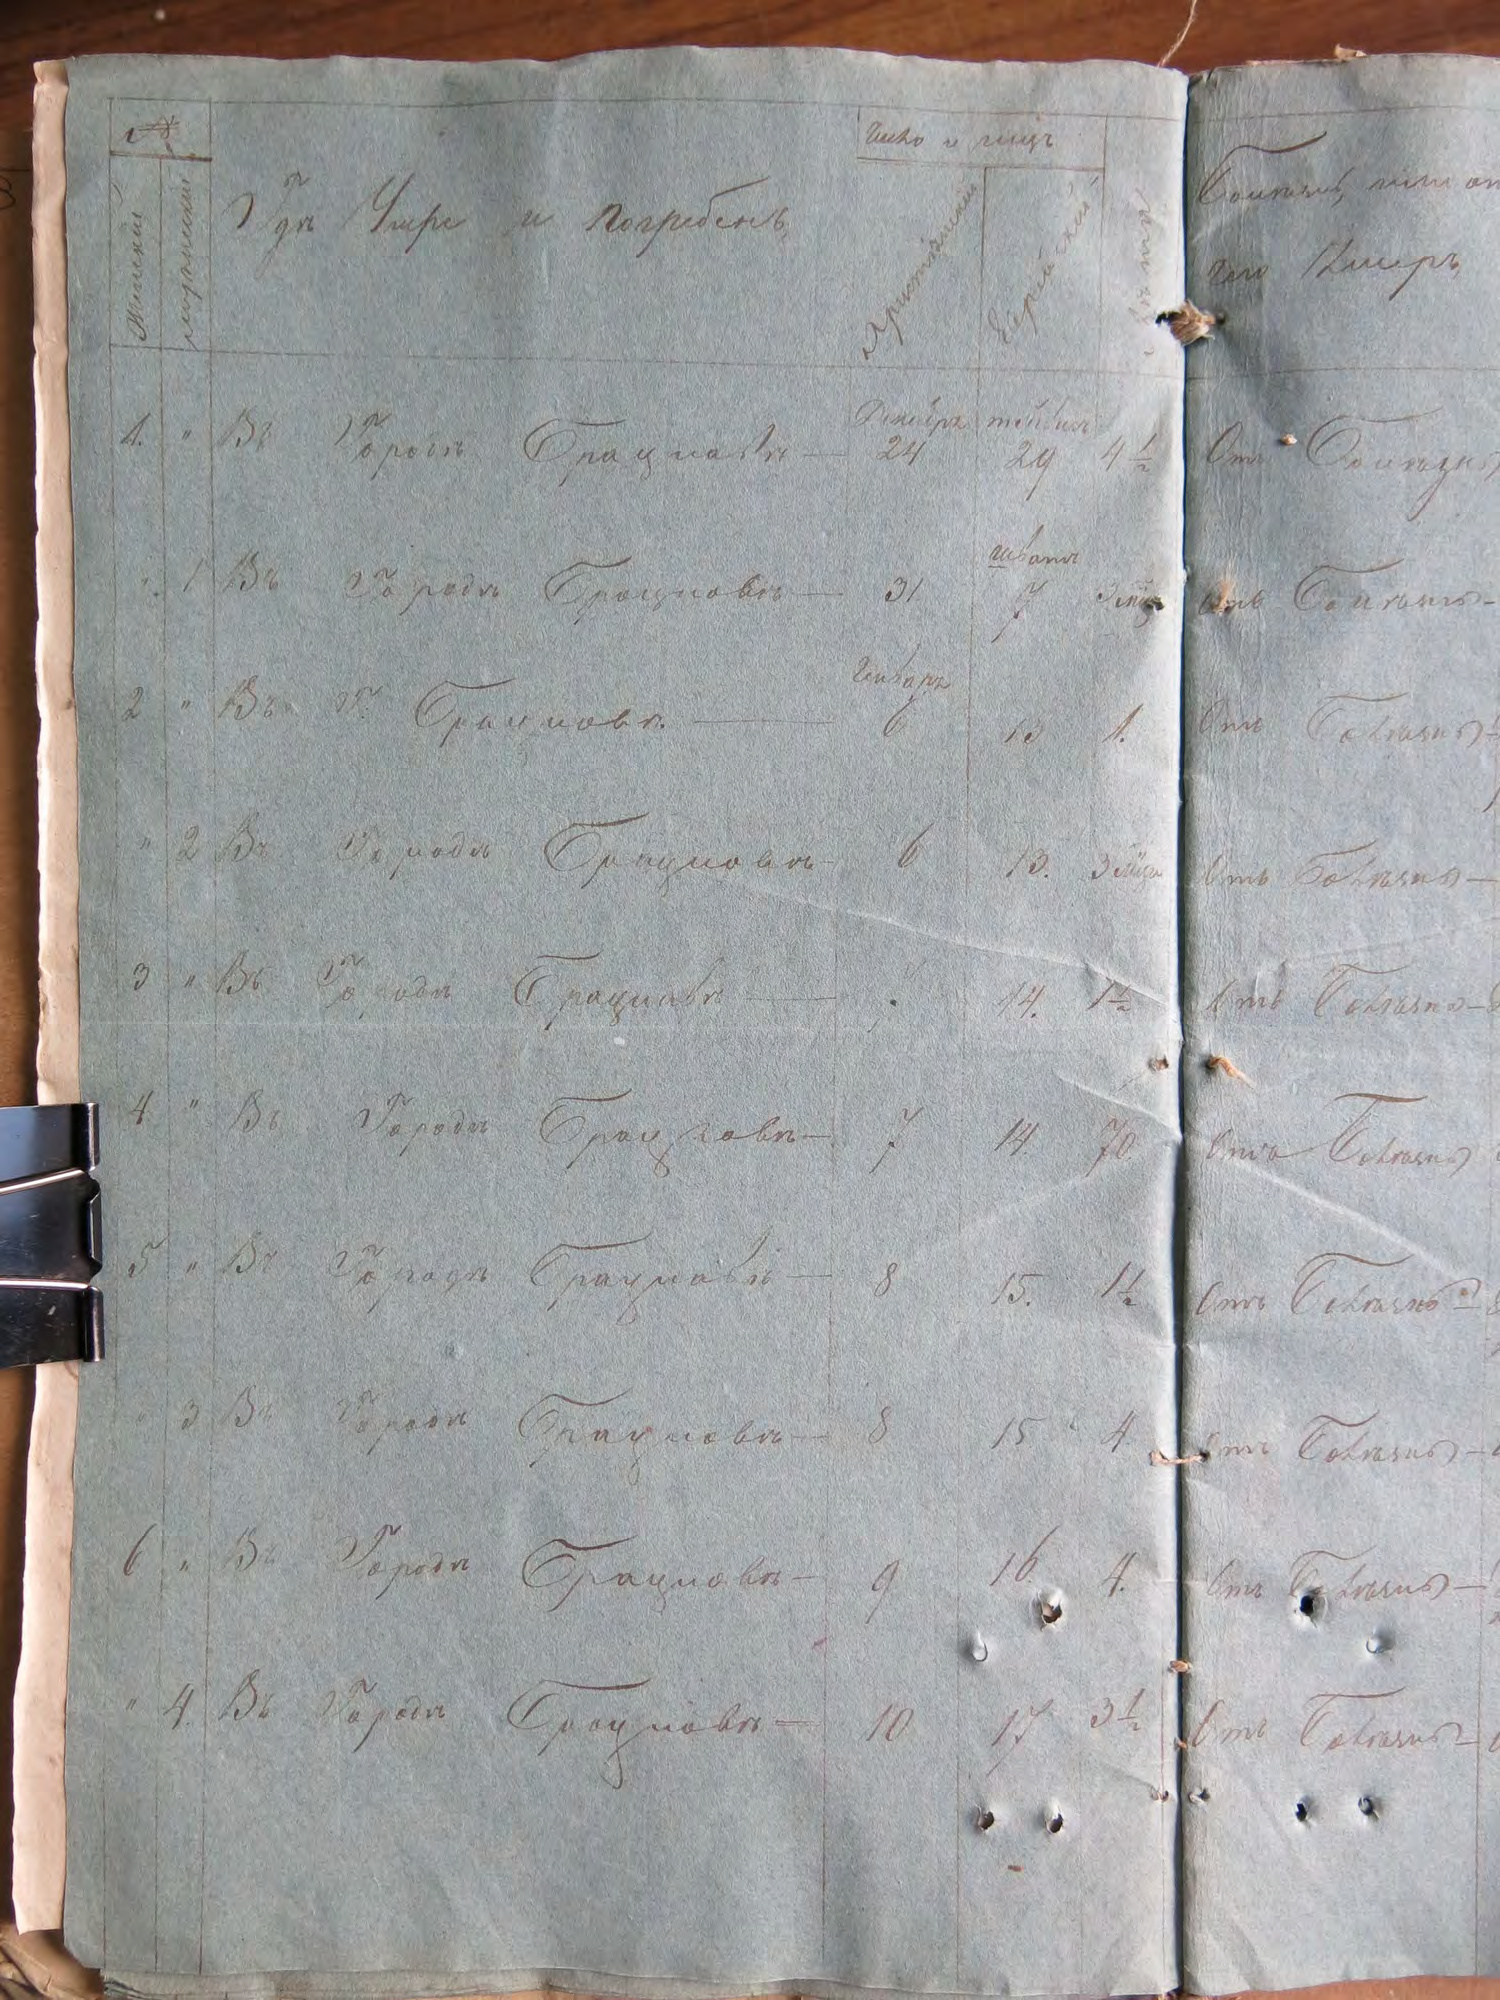 №
Число и мсцъ
Женскій
мужескій
Гдѣ Умре и погребенъ
Христіянскій
Еврейскій
Лѣта
Болѣзнь, или отъ
чего Умеръ
4. " Въ Городѣ Брацлавѣ — Декабря 24 тейвисъ 29 4 1/2 Отъ Болѣзни
" 1 Въ Городѣ Брацлавѣ — 31 шватъ 7 3 мсц Отъ Болѣзни —
2 " Въ Г. Брацлавѣ — Генваря 6 13 1. Отъ Болѣзни —
" 2 Въ Городѣ Брацлавѣ — 6 13. 3 Отъ Болѣзни —
3 " Въ Городѣ Брацлавѣ — 14. 1 1/2 Отъ Болѣзни —
4 " Въ Городѣ Брацлавѣ — 7 14. 70. Отъ Болѣзни
5 " Въ Городѣ Брацлавѣ — 8 15. 1 1/2 Отъ Болѣзни —
" 3 Въ Городѣ Брацлавѣ — 8 15 4 Отъ Болѣзни —
6 " Въ Городѣ Брацлавѣ — 9 16 4. Отъ Болѣзни —
" 4. Въ Городѣ Брацлавѣ — 10 17 3 1/2 Отъ Болѣзни —